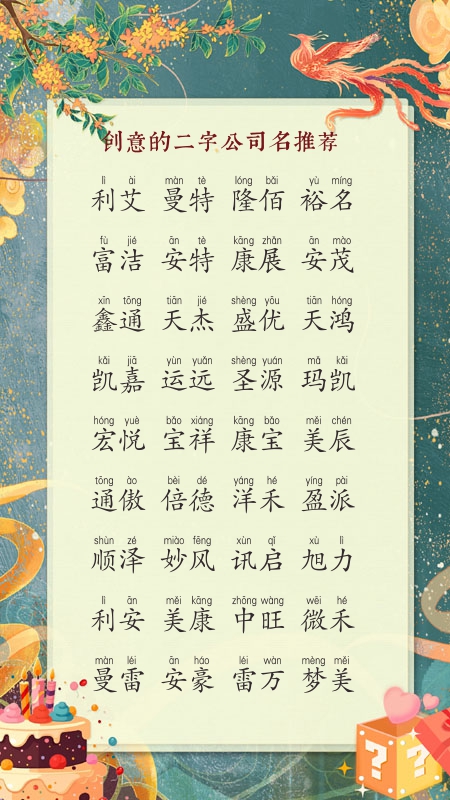 创意的二字公司名推荐
lì ài màn tè lóng bǎi yù míng
利艾 曼特 隆佰 裕名
fù jié ān tè kāng zhǎn ān mào
富洁 安特 康展 安茂
xīn tōng tiān jié shèng yōu tiān hóng
鑫通 天杰 盛优 天鸿
kǎi jiā yùn yuǎn shèng yuán mǎ kǎi
凯嘉 运远 圣源 玛凯
hóng yuè bǎo xiáng kāng bǎo měi chén
宏悦 宝祥 康宝 美辰
tōng ào bèi dé yáng hé yíng pài
通傲 倍德 洋禾 盈派
shùn zé miào fēng xùn qǐ xù lì
顺泽 妙风 讯启 旭力
lì ān měi kāng zhōng wàng wēi hé
利安 美康 中旺 微禾
màn léi ān háo léi wàn mèng měi
曼雷 安豪 雷万 梦美
? ?